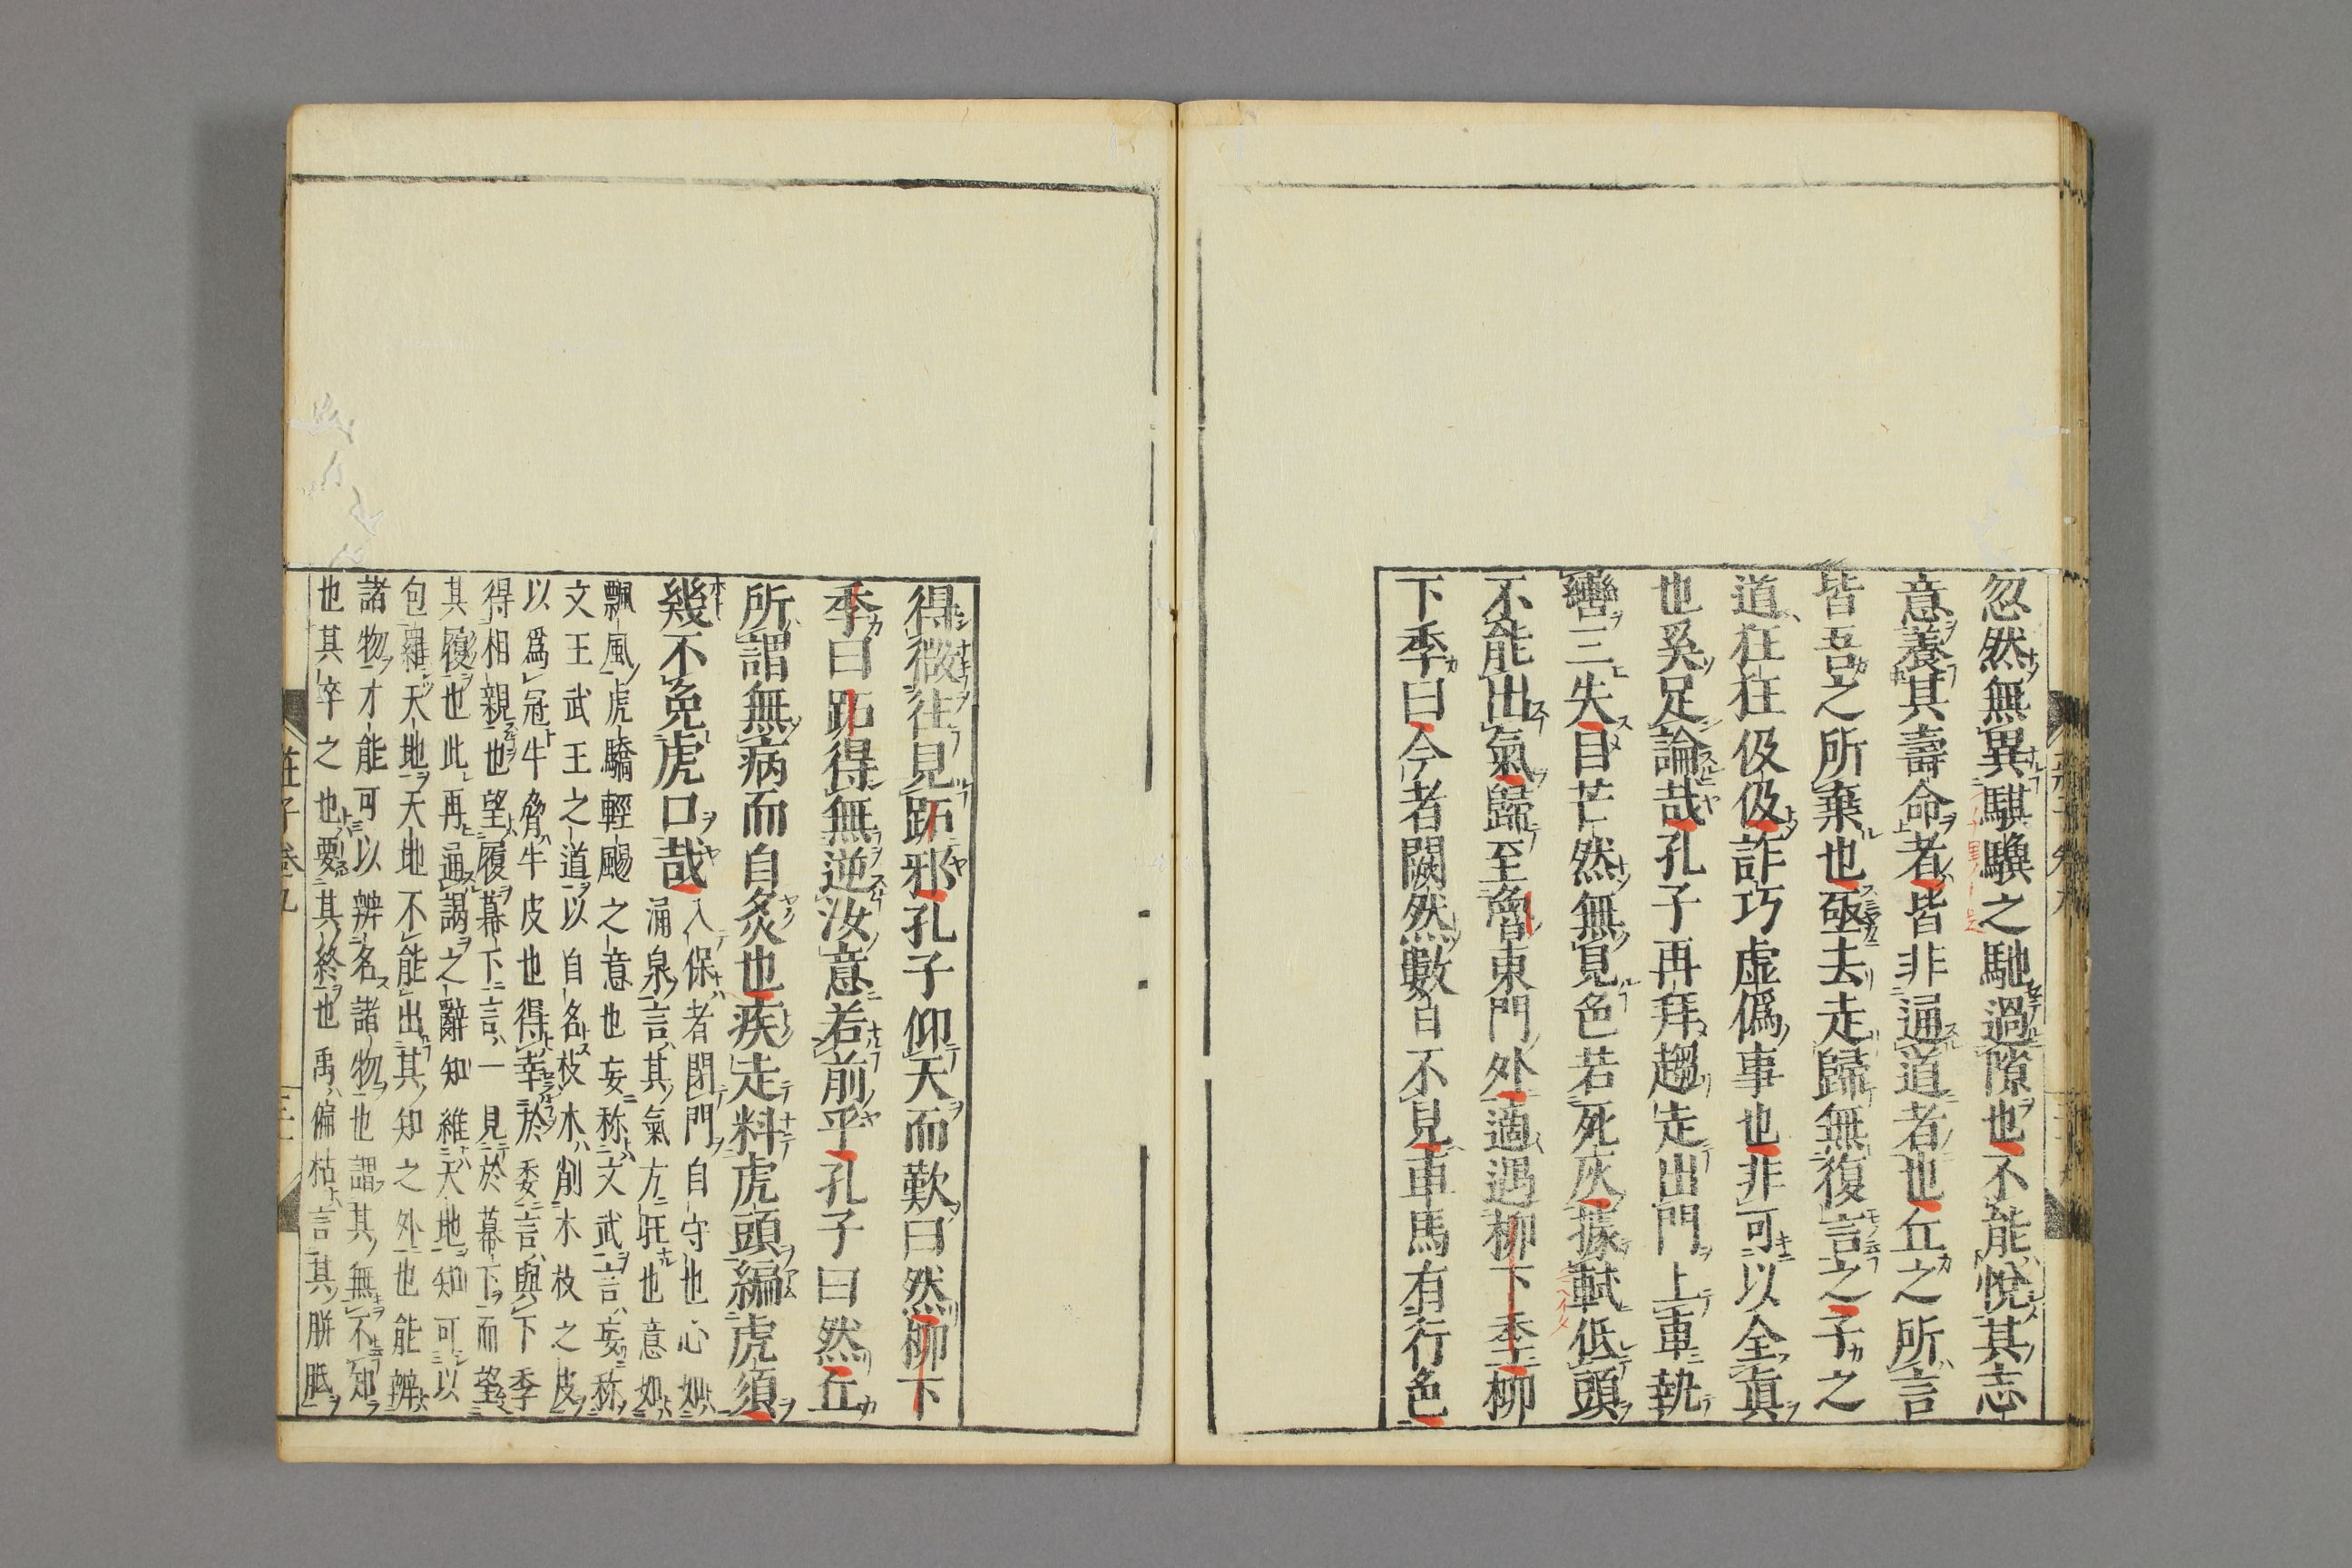 忽然無異騏驥之馳過隙也不能悅其志
意養其壽命者皆非通道者也丘之所言
皆吾之所棄也亟去走歸無復言之子之
道狂狂伋伋詐巧虛僞事也非可以全眞
也奚足論哉孔子再拜趨走出門上車執
轡三失目芒然無見色若死灰據軾低頭
不能出氣歸至魯東門外適遇柳下季柳
下季曰今者闕然數日不見車馬有行色
得微往見跖邪孔子仰天而歎曰然柳下
季曰跖得無逆汝意若前乎孔子曰然丘
所謂無病而自炙也疾走料虎頭編虎須
幾不免虎口哉
入保者閉門自守也心如
涌泉言其氣方旺也意如
飄風虎驕輕颺之意也妄称文武言妄称
文王武王之道以自名枝木削木枝之皮
以爲冠牛脅牛皮也得幸於委言與下季
得相親也望履幕下言一見於幕下而望
其履也此再通謁之辭知維天地知可以
包羅天地天地不能出其知之外也能辨
諸物才能可以辨名諸物也謂其無不知
也其卒之也要其終也禹偏枯言其胼胝
莊子卷九